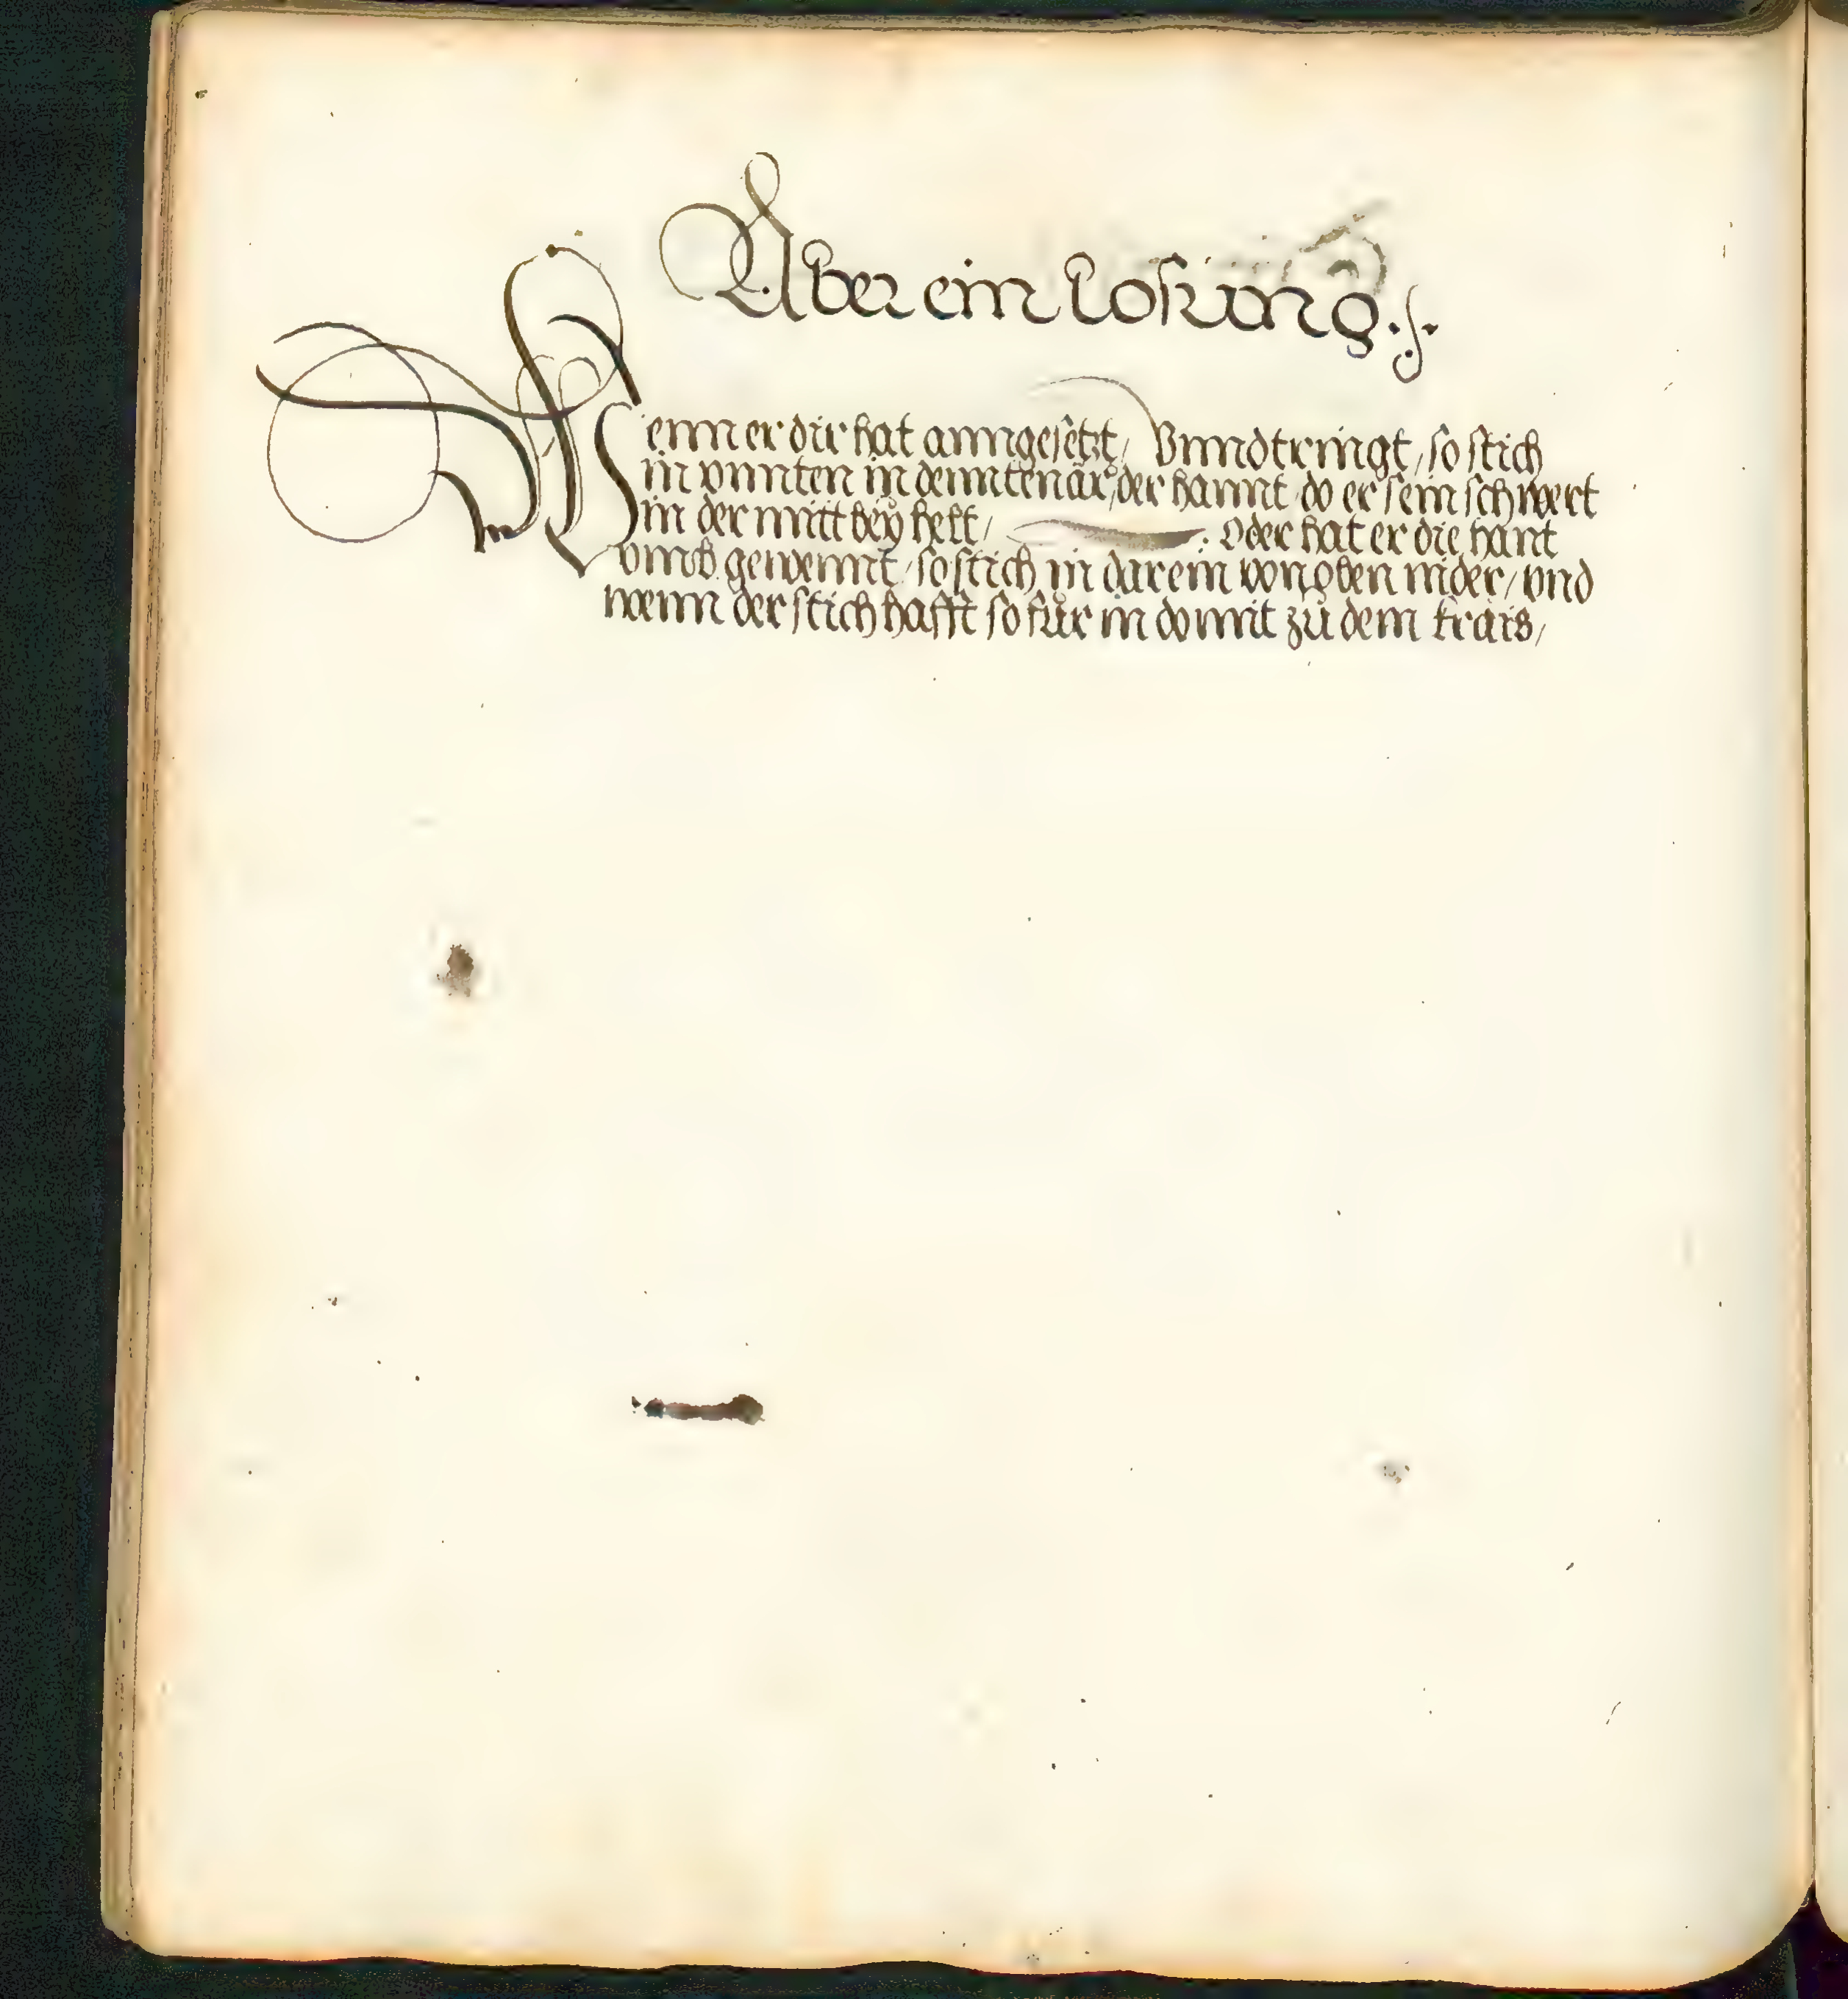 Aber ein losung
Wenn er dir hat anngesetzt / Vnnd tringt / so stich
in vnnten in denn tenär, der hannt do er sein schwert
in der mitt beÿ helt / Oder hat er die hant
vmb gewennt / so stich in darein von oben nider / vnd
wenn der stich hafft so für in do mit zů dem krais /